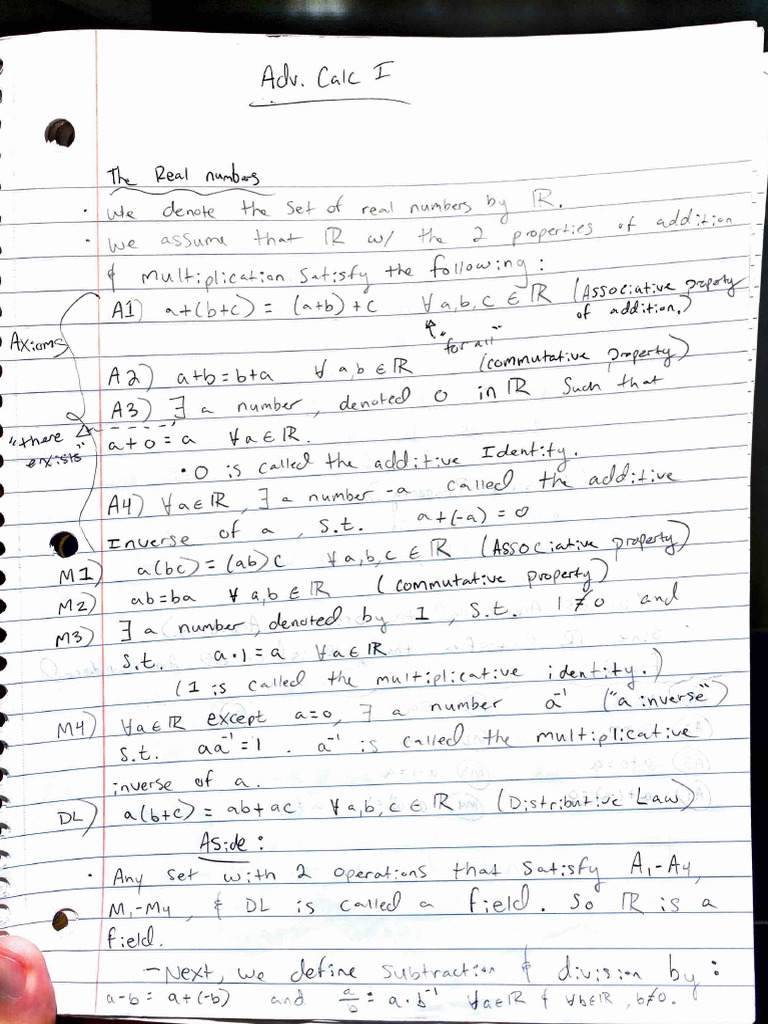 Adv. Calc I
The Real numbers
· We denote the set of real numbers by ℝ.
· We assume that ℝ w/ the 2 properties of addition
& multiplication satisfy the following:
Axioms
A1) a+(b+c) = (a+b)+c ∀ a,b,c ∈ ℝ (Associative property
of addition.)
"for all"
A2) a+b=b+a ∀ a,b ∈ ℝ (commutative property)
A3) ∃ a number, denoted 0 in ℝ such that
"there exists"
a+0=a ∀a∈ℝ.
· 0 is called the additive Identity.
A4) ∀a∈ℝ, ∃ a number -a called the additive
Inverse of a, s.t. a+(-a)=0
M1) a(bc)=(ab)c ∀ a,b,c ∈ ℝ (Associative property)
M2) ab=ba ∀ a,b ∈ ℝ (commutative property)
M3) ∃ a number, denoted by 1, s.t. 1≠0 and
s.t. a·1=a ∀a∈ℝ
(1 is called the multiplicative identity.)
M4) ∀a∈ℝ except a=0, ∃ a number a⁻¹ ("a inverse")
s.t. aa⁻¹=1. a⁻¹ is called the multiplicative
inverse of a.
DL) a(b+c)=ab+ac ∀ a,b,c ∈ ℝ (Distributive Law)
Aside:
· Any set with 2 operations that satisfy A₁-A4,
M₁-M4, & DL is called a field. So ℝ is a
field.
- Next, we define subtraction & division by:
a-b = a+(-b) and a/b = a·b⁻¹ ∀a∈ℝ & ∀b∈ℝ, b≠0.